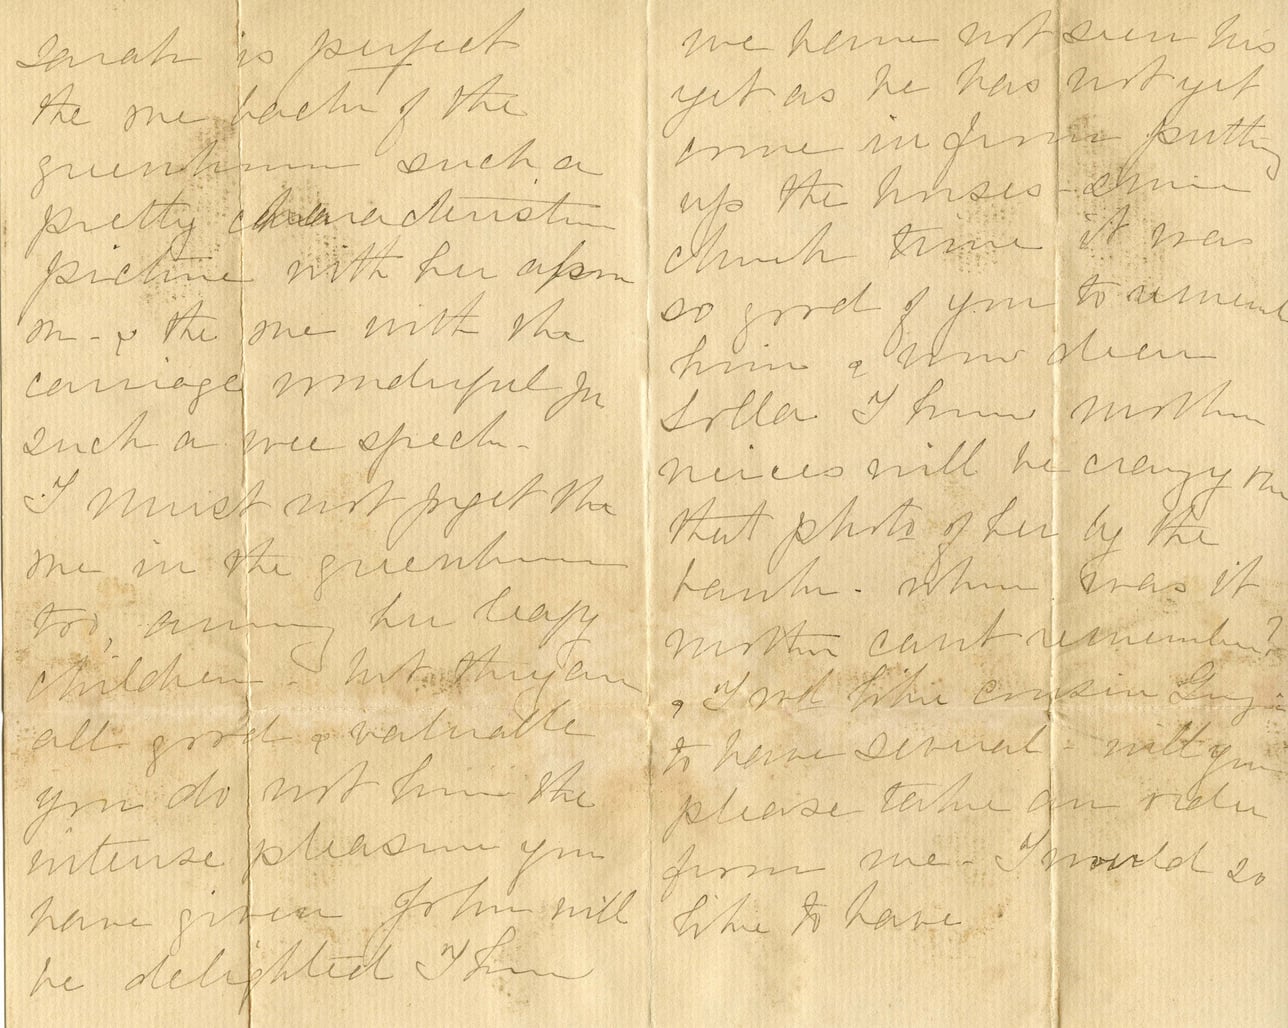 Sarah is perfect
the one back of the
greenhouse such a
pretty characteristic
picture with her apron
on - & the one with the
carriage wonderful for
such a wee speck -
I must not forget the
one in the greenhouse
too, among her leafy
children - but they are
all good & valuable
you do not know the
intense pleasure you
have given John will
be delighted I know
we have not seen his
yet as he has not yet
come in from putting
up the horses - since
church time it was
so good of you to rememb
him & now dear
Lolla I know mother
neices will be crazy over
that photo of her by the
bank - when was it
mother cant remember?
& I wd like cousin Guy -
to have several - will you
please take an order
from me - I would so
like to have